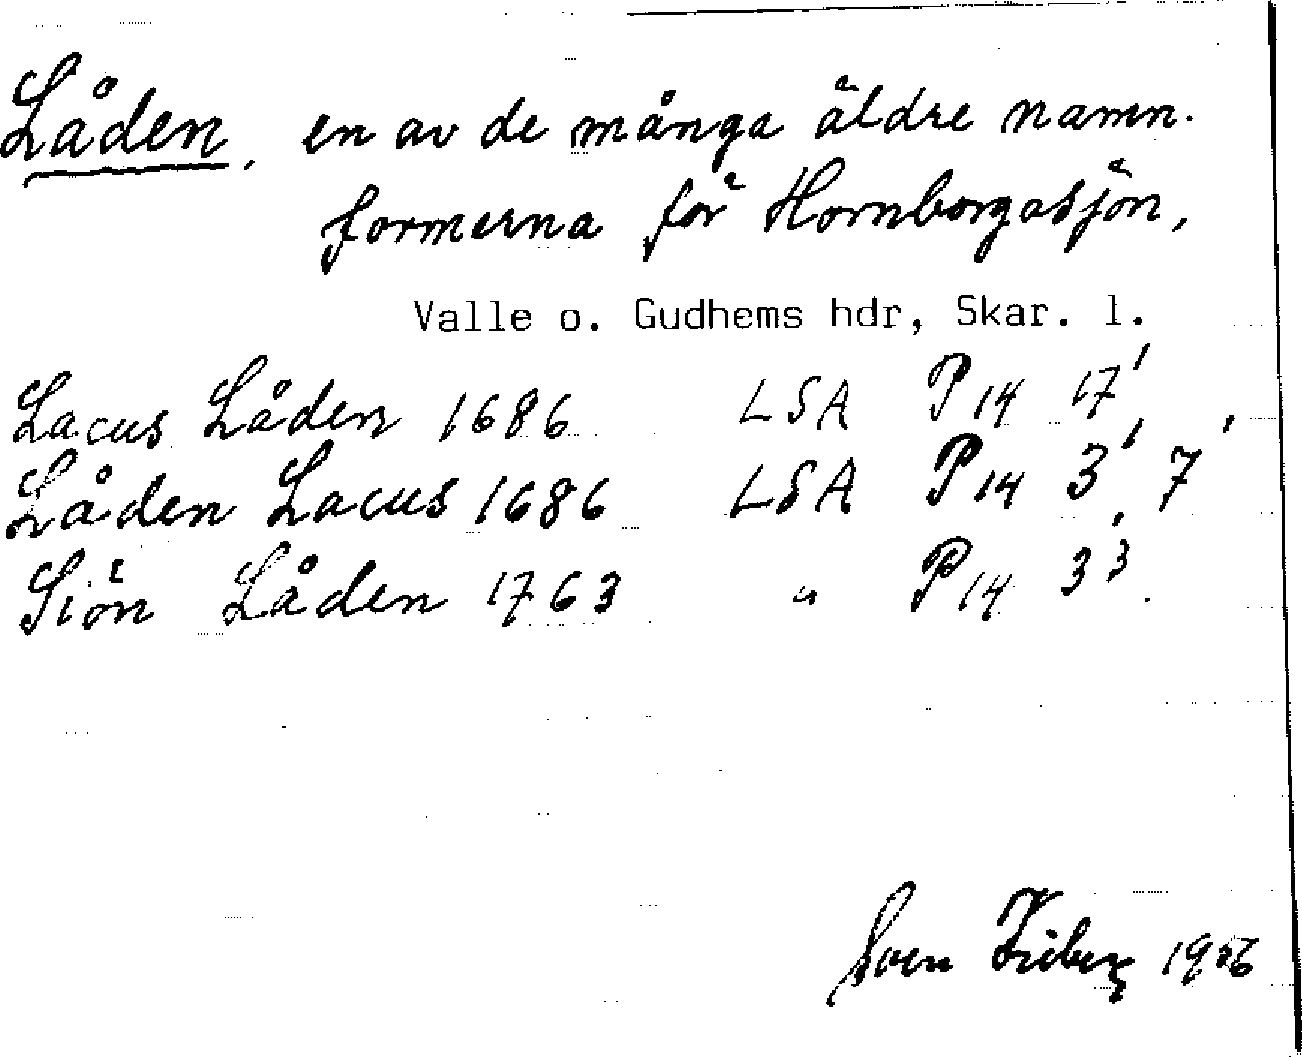 Låden, en av de många äldre namn-
formerna för Hornborgasjön,
Valle o. Gudhems hdr, Skar. l.
Lacus Låden 1686 LSA P14 17',
Låden Lacus 1686 LSA P14 3', 7'
Siön Låden 1763 " P14 3³.
Sven